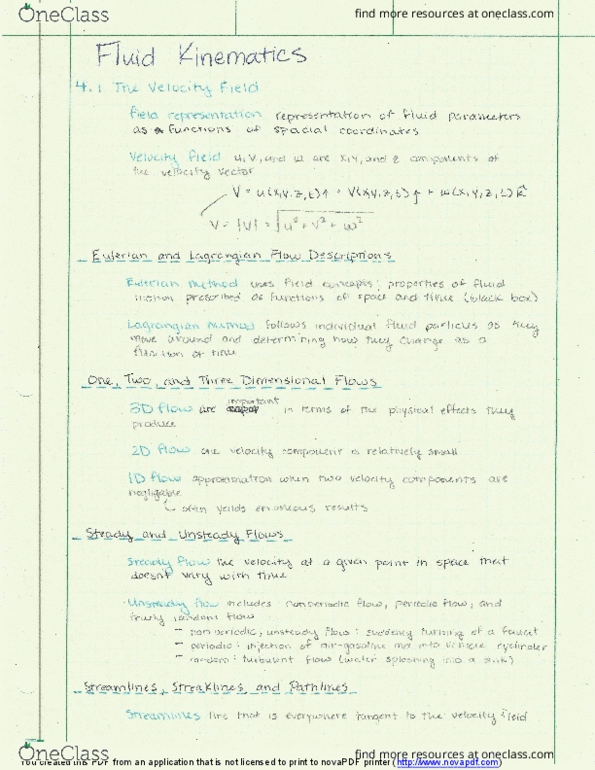 OneClass
find more resources at oneclass.com
Fluid Kinematics
4.1 The Velocity Field
Field representation representation of fluid parameters
as functions of spacial coordinates
Velocity Field u, v, and w are x, y, and z components of
the velocity vector
V = u(x,y,z,t)î + v(x,y,z,t)ĵ + w(x,y,z,t)k̂
V = |V| = √u² + v² + w²
Eulerian and Lagrangian Flow Descriptions
Eulerian method uses field concepts; properties of fluid
motion prescribed as functions of space and time (black box)
Lagrangian method follows individual fluid particles as they
move around and determining how they change as a
function of time
One, Two, and Three Dimensional Flows
important
3D flow are in terms of the physical effects they
produce
2D flow one velocity component is relatively small
1D flow approximation when two velocity components are
negligable
often yeilds erroneous results
Steady and Unsteady Flows
Steady flow the velocity at a given point in space that
doesn't vary with time
Unsteady flow includes nonperiodic flow, periodic flow, and
truly random flow
- non periodic, unsteady flow: suddenly turning of a faucet
- periodic: injection of air-gasoline mix into cylinder
- random: turbulent flow (water splashing into a sink)
Streamlines, Streaklines, and Pathlines
Streamlines line that is everywhere tangent to the velocity field
OneClass
find more resources at oneclass.com
You created this PDF from an application that is not licensed to print to novaPDF printer (http://www.novapdf.com)